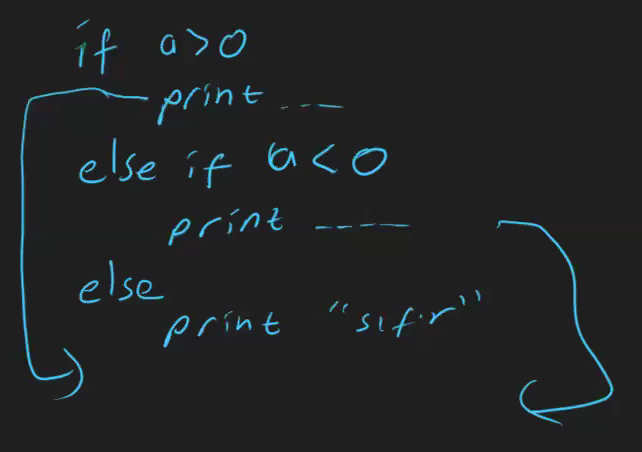 if a>0
print ---
else if a<0
print ----
else
print "sıfır"